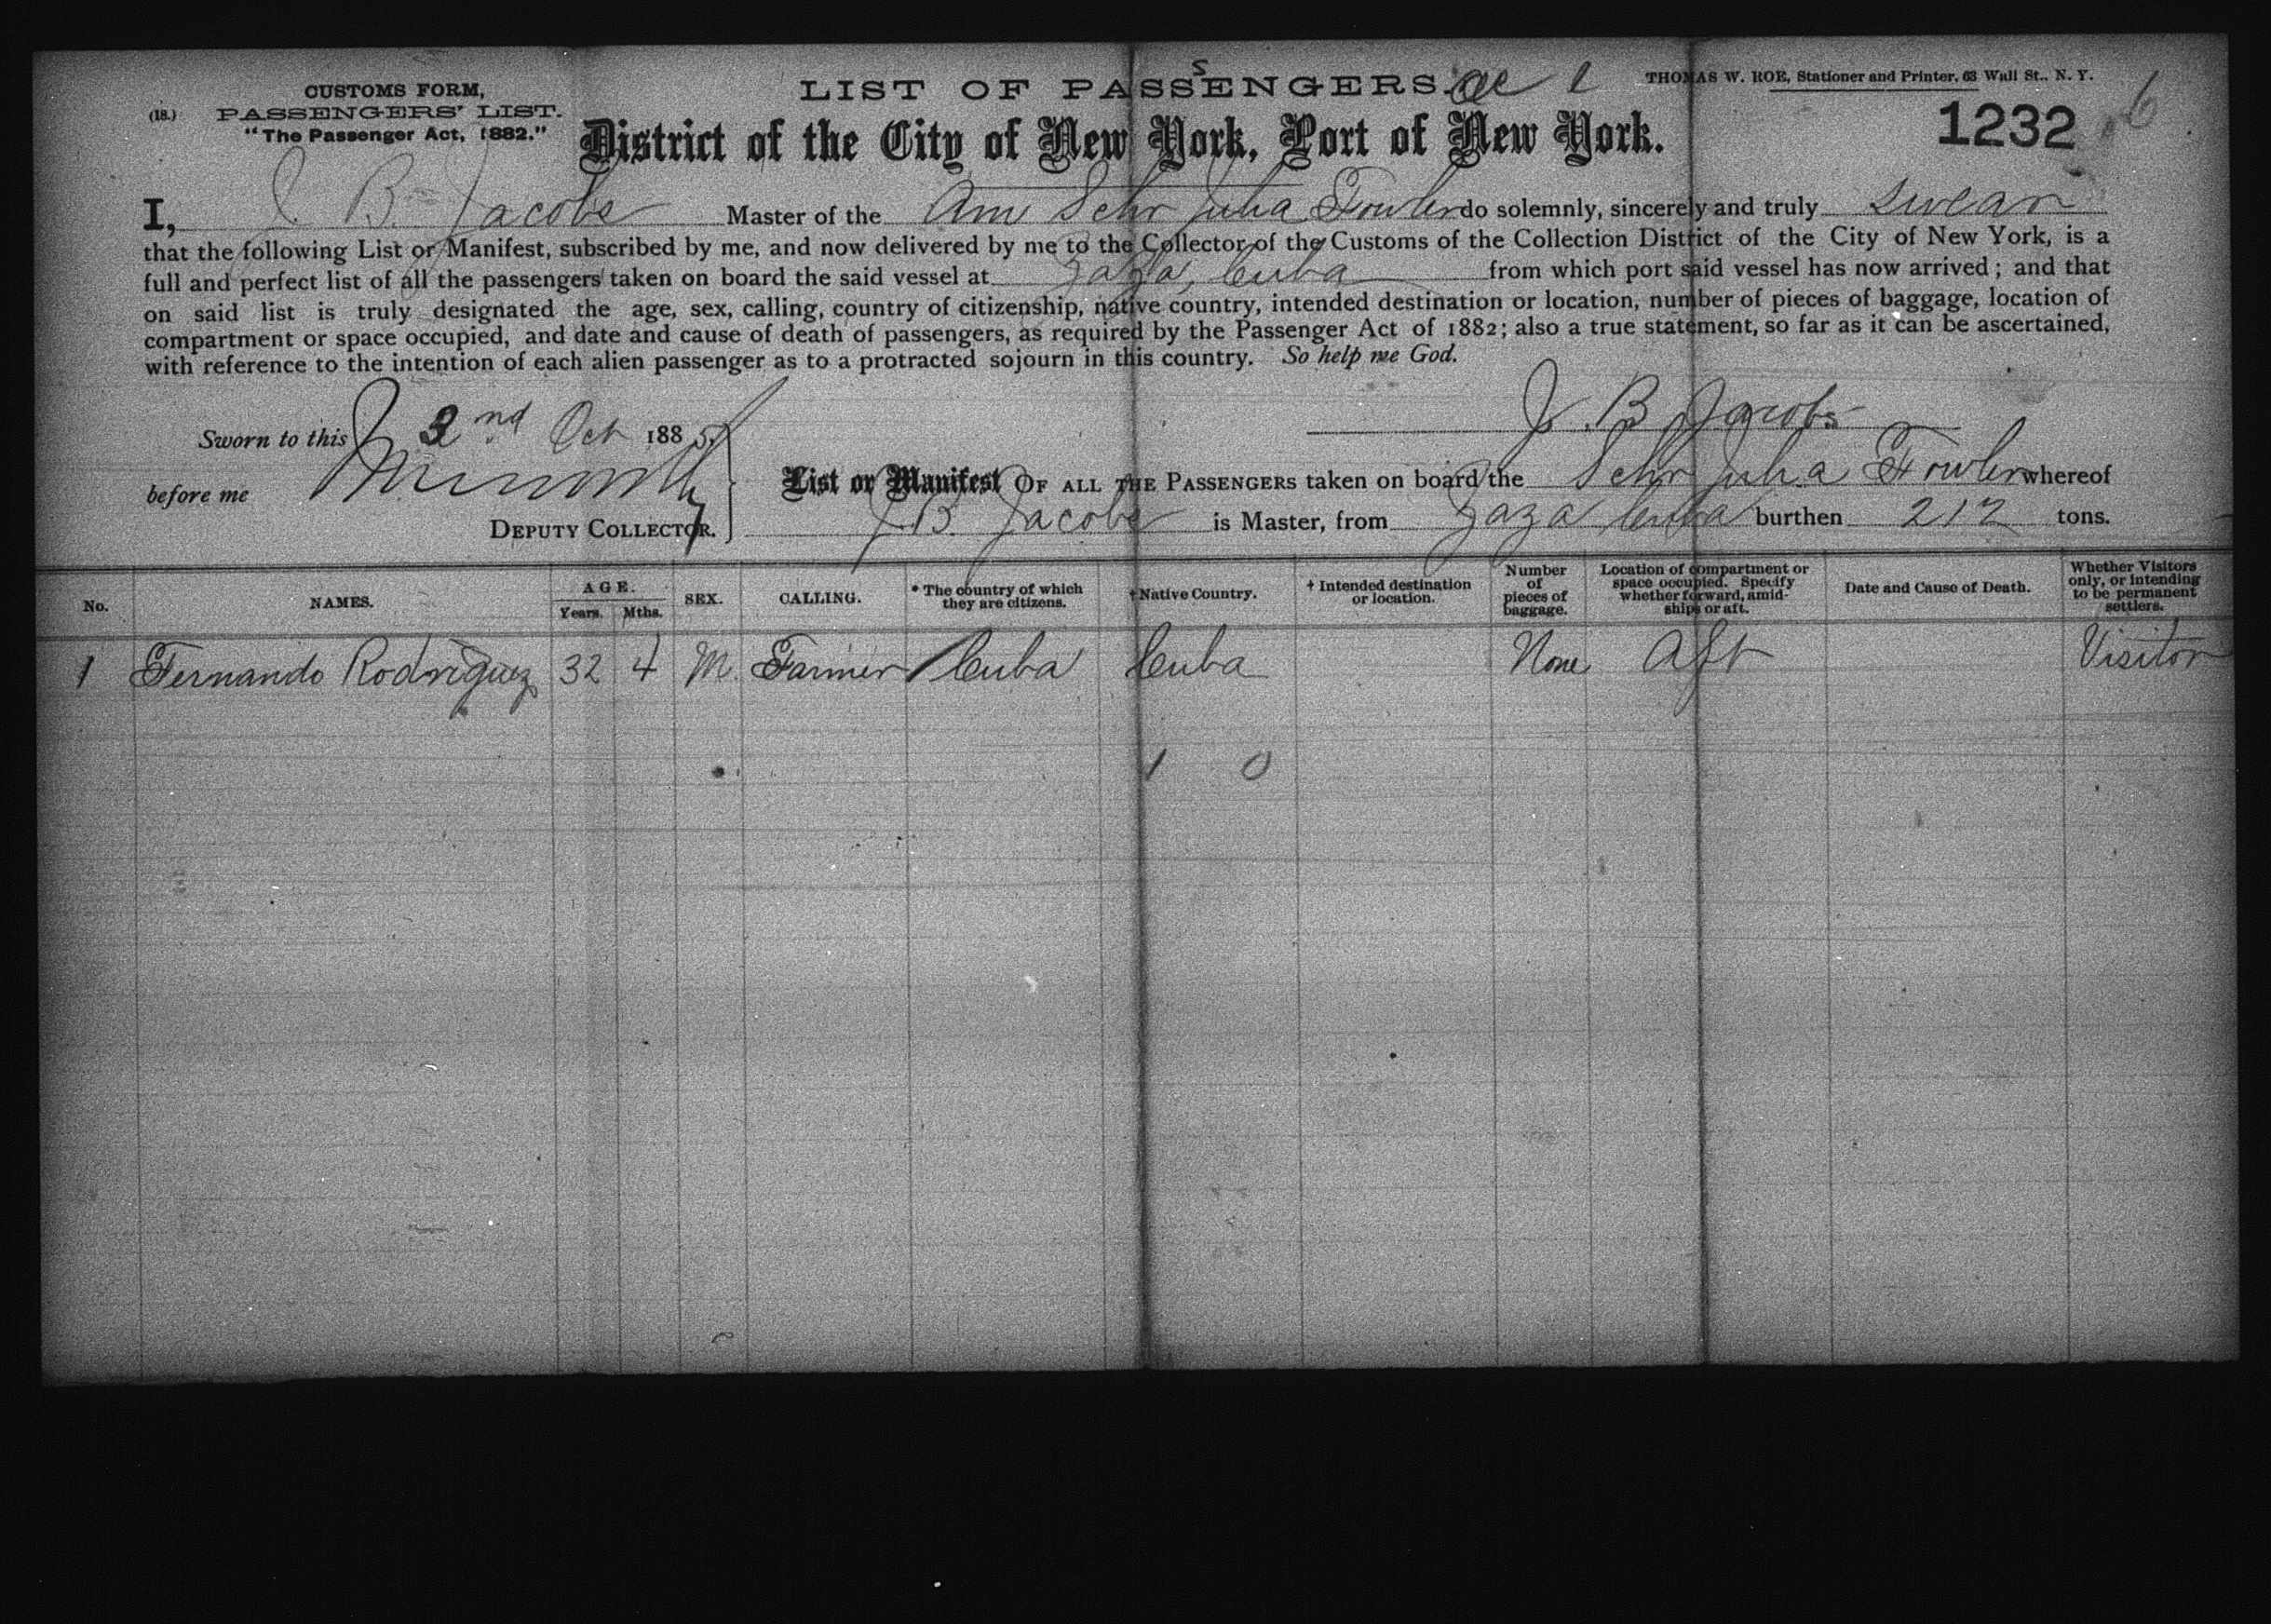 CUSTOMS FORM,
(18.) PASSENGERS' LIST.
"The Passenger Act, 1882."
LIST OF PASSENGERS.
THOMAS W. ROE, Stationer and Printer, 63 Wall St., N. Y.
District of the City of New York, Port of New York.
1232
6
I, J. B. Jacobs Master of the Am Schr Julia Fowler do solemnly, sincerely and truly swear
that the following List or Manifest, subscribed by me, and now delivered by me to the Collector of the Customs of the Collection District of the City of New York, is a
full and perfect list of all the passengers taken on board the said vessel at Zaza, Cuba from which port said vessel has now arrived; and that
on said list is truly designated the age, sex, calling, country of citizenship, native country, intended destination or location, number of pieces of baggage, location of
compartment or space occupied, and date and cause of death of passengers, as required by the Passenger Act of 1882; also a true statement, so far as it can be ascertained,
with reference to the intention of each alien passenger as to a protracted sojourn in this country. So help me God.
J. B. Jacobs
Sworn to this 2nd Oct 1885.
before me
DEPUTY COLLECTOR.
List or Manifest OF ALL THE PASSENGERS taken on board the Schr Julia Fowler whereof
J. B. Jacobs is Master, from Zaza Cuba burthen 212 tons.
No. NAMES. AGE. Years. Mths. SEX. CALLING. * The country of which they are citizens. † Native Country. † Intended destination or location. Number of pieces of baggage. Location of compartment or space occupied. Specify whether forward, amidships or aft. Date and Cause of Death. Whether Visitors only, or intending to be permanent settlers.
1 Fernando Rodriguez 32 4 M. Farmer Cuba Cuba None Aft Visitor
1 0